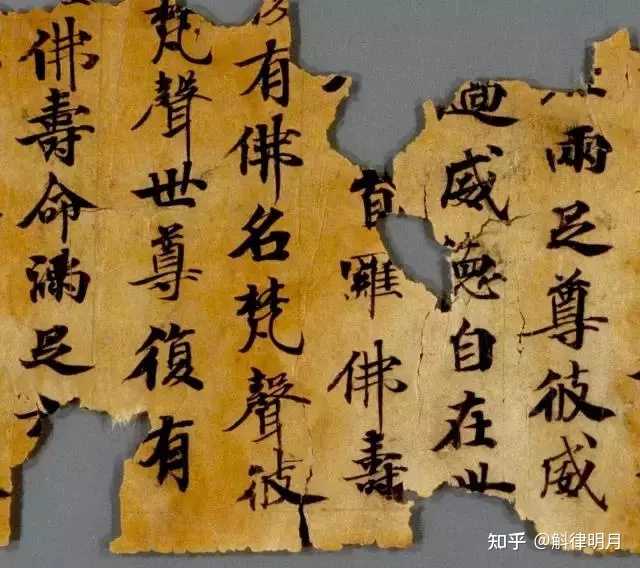 兩足尊彼威
威德自在世
首羅佛壽
有佛名梵聲彼
梵聲世尊復有
佛壽命滿足
知乎 @斛律明月